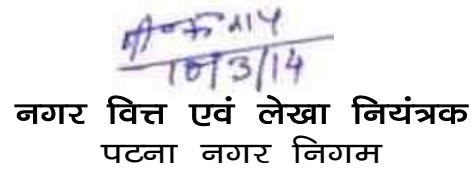 10/3/14
नगर वित्त एवं लेखा नियंत्रक
पटना नगर निगम